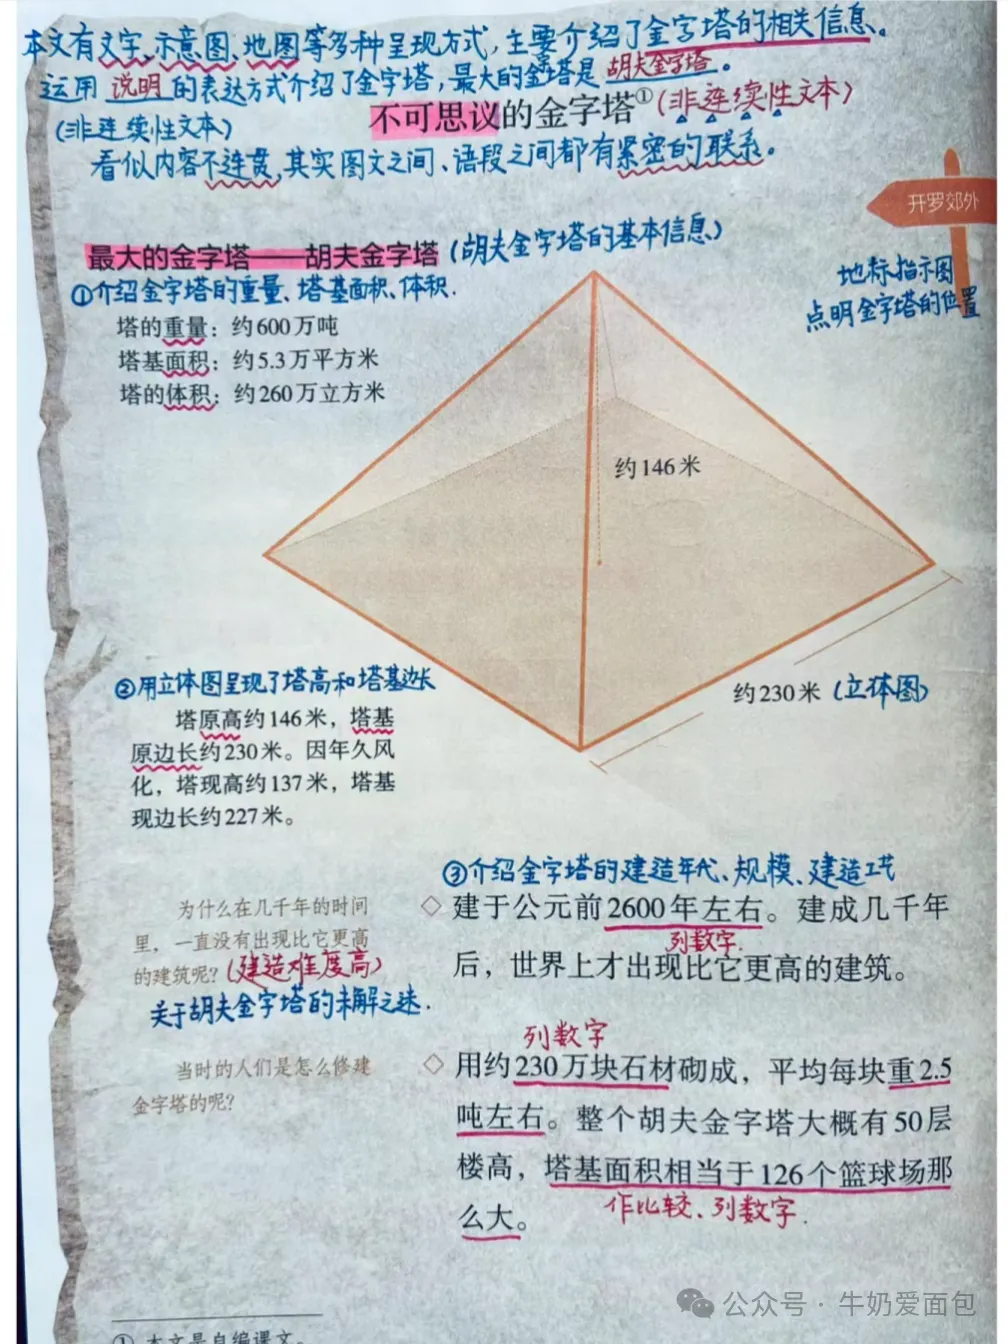 本文有文字、示意图、地图等多种呈现方式,主要介绍了金字塔的相关信息。
运用 说明 的表达方式介绍了金字塔,最大的金塔是 胡夫金字塔 。
不可思议的金字塔①(非连续性文本)
(非连续性文本)
看似内容不连贯,其实图文之间、语段之间都有紧密的联系。
开罗郊外
地标指示图
点明金字塔的位置
最大的金字塔——胡夫金字塔(胡夫金字塔的基本信息)
①介绍金字塔的重量、塔基面积、体积.
塔的重量:约600万吨
塔基面积:约5.3万平方米
塔的体积:约260万立方米
约146米
约230米(立体图)
②用立体图呈现了塔高和塔基边长
塔原高约146米,塔基
原边长约230米。因年久风
化,塔现高约137米,塔基
现边长约227米。
③介绍金字塔的建造年代、规模、建造工艺
为什么在几千年的时间
里,一直没有出现比它更高
的建筑呢?(建造难度高)
关于胡夫金字塔的未解之迷.
◇ 建于公元前2600年左右。建成几千年
列数字.
后,世界上才出现比它更高的建筑。
当时的人们是怎么修建
金字塔的呢?
列数字
◇ 用约230万块石材砌成,平均每块重2.5
吨左右。整个胡夫金字塔大概有50层
楼高,塔基面积相当于126个篮球场那
么大。
作比较、列数字.
① 本文是自编课文。
公众号·牛奶爱面包